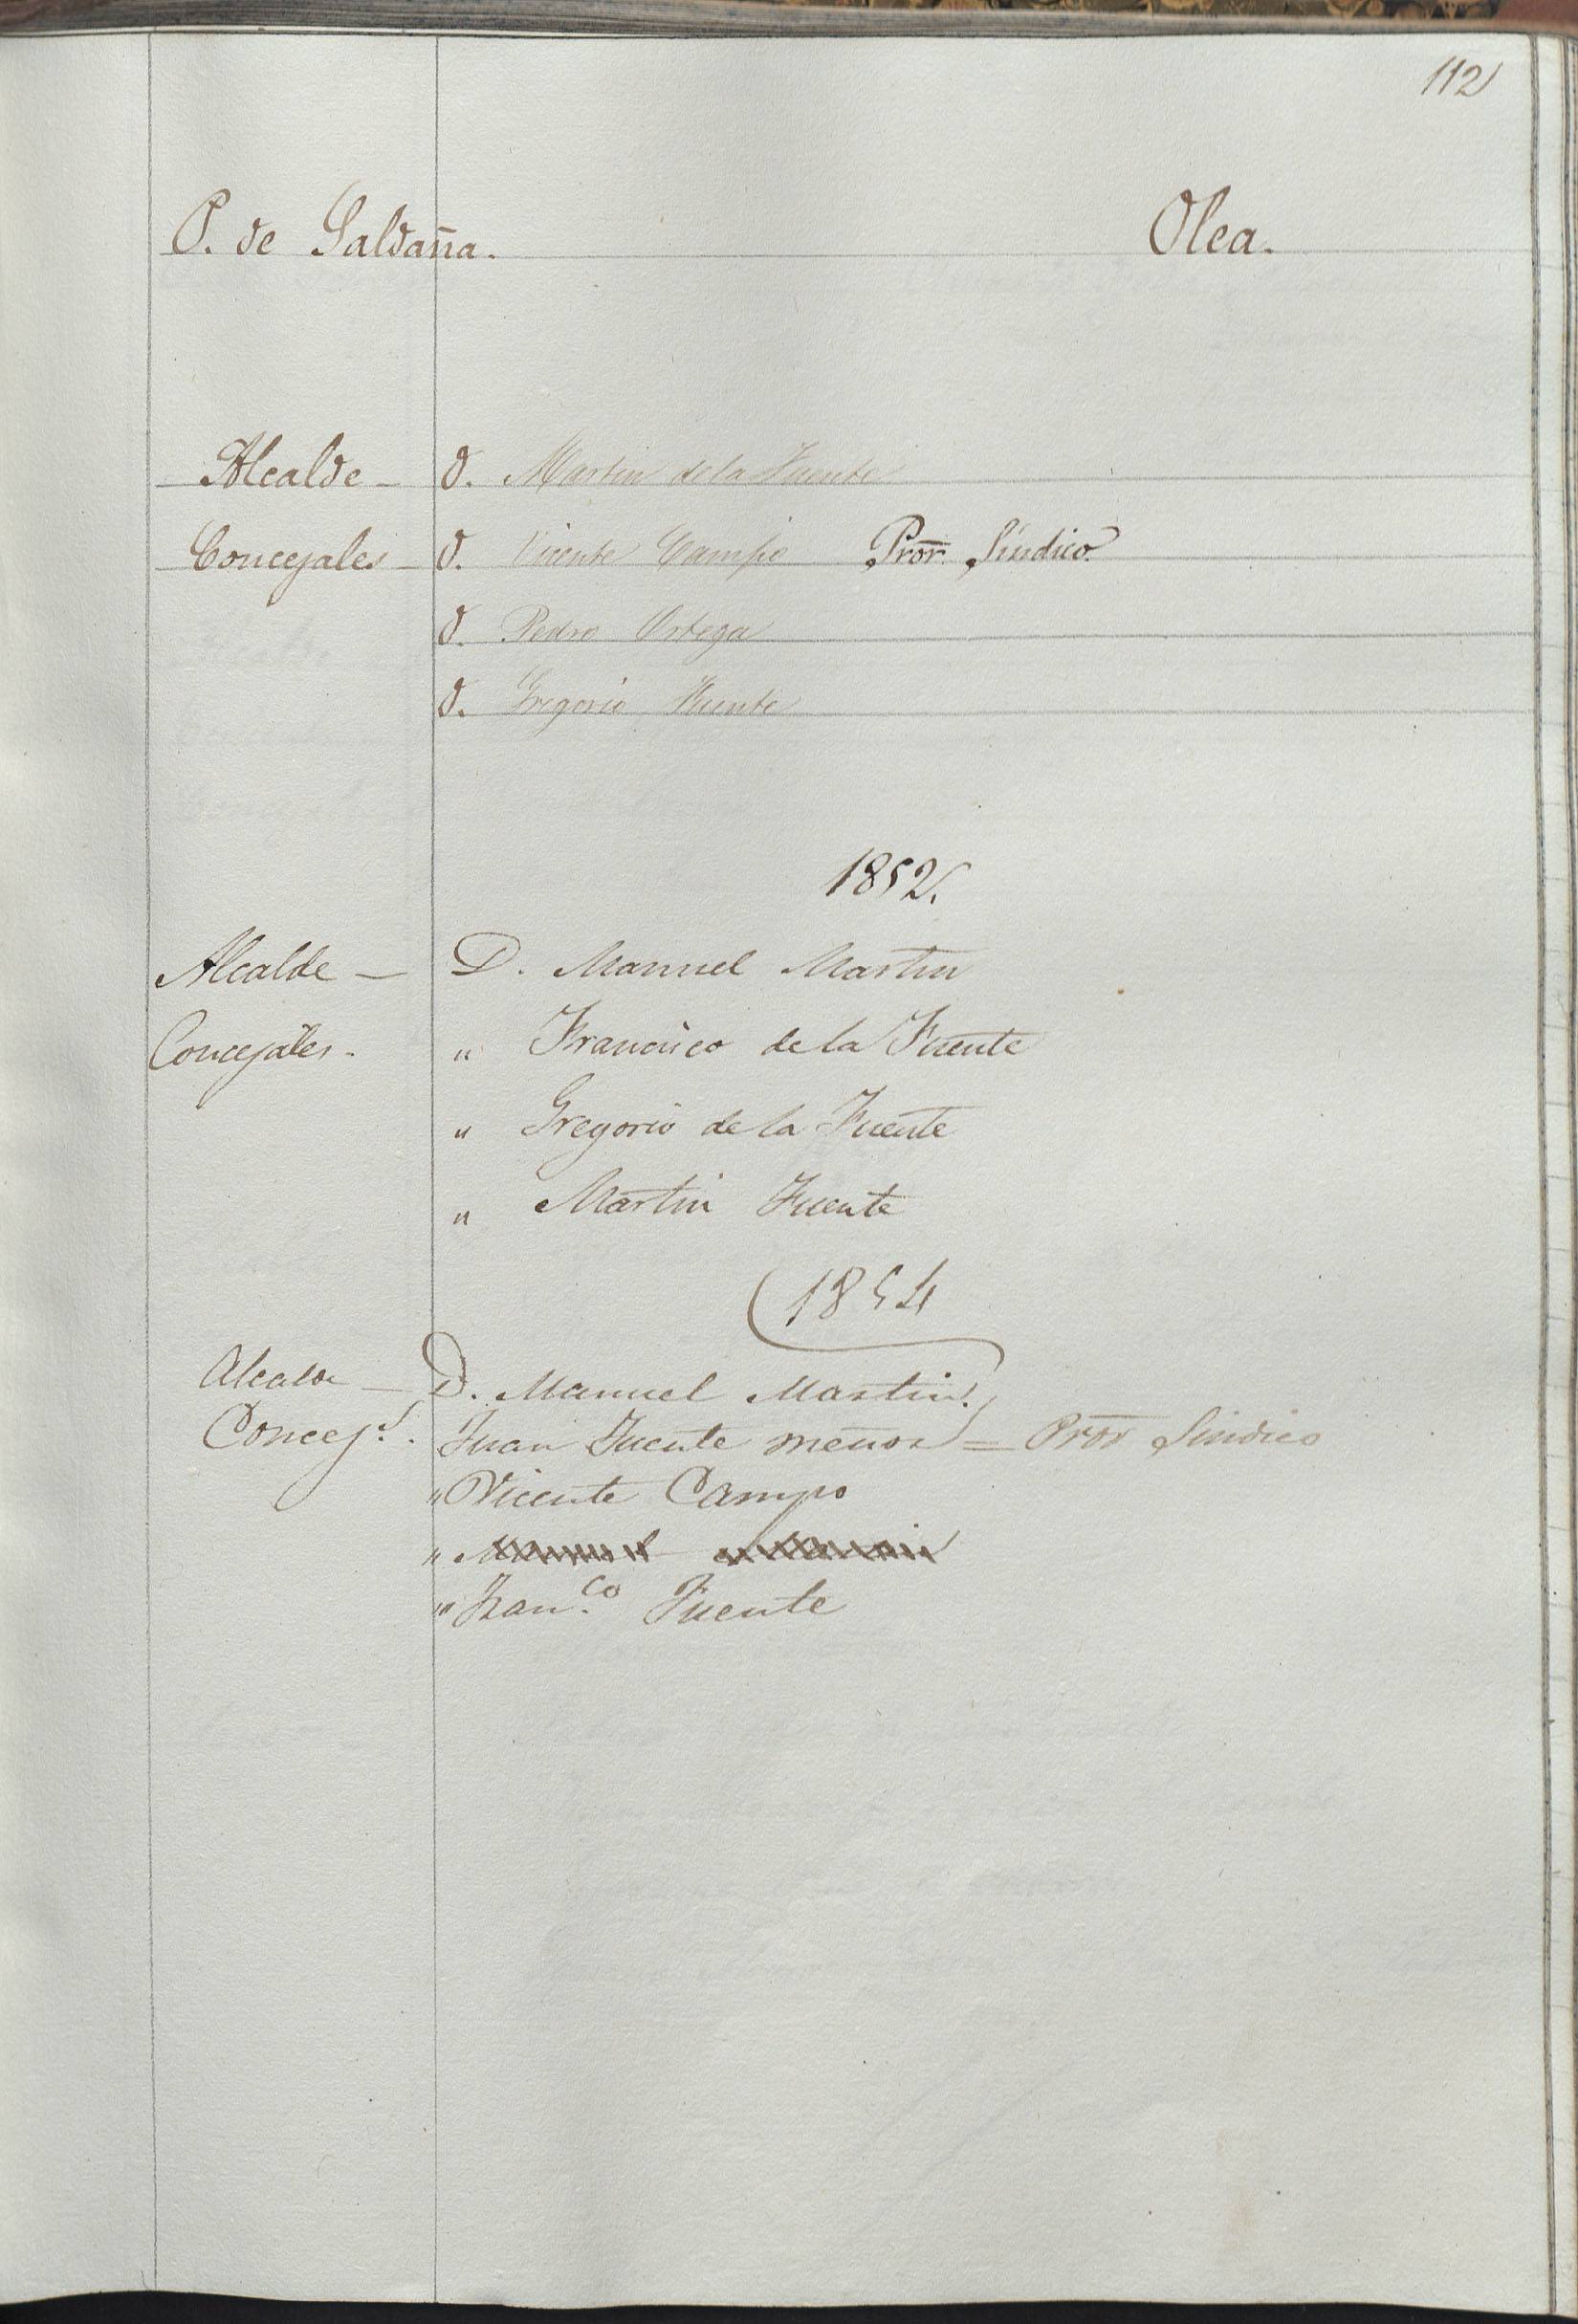 112
P. de Saldaña. Olea.
Alcalde - D. Martin de la Fuente
Concejales - D. Vicente Campo Pror. Síndico.
D. Pedro Ortega
D. Gregorio Fuente
1852.
Alcalde - D. Manuel Martin
Concejales. " Francisco de la Fuente
" Gregorio de la Fuente
" Martin Fuente
1854
Alcalde - D. Manuel Martin
Concejs. Juan Fuente menor = Pror Sindico
" Vicente Campo
" Manuel
" Franco. Fuente